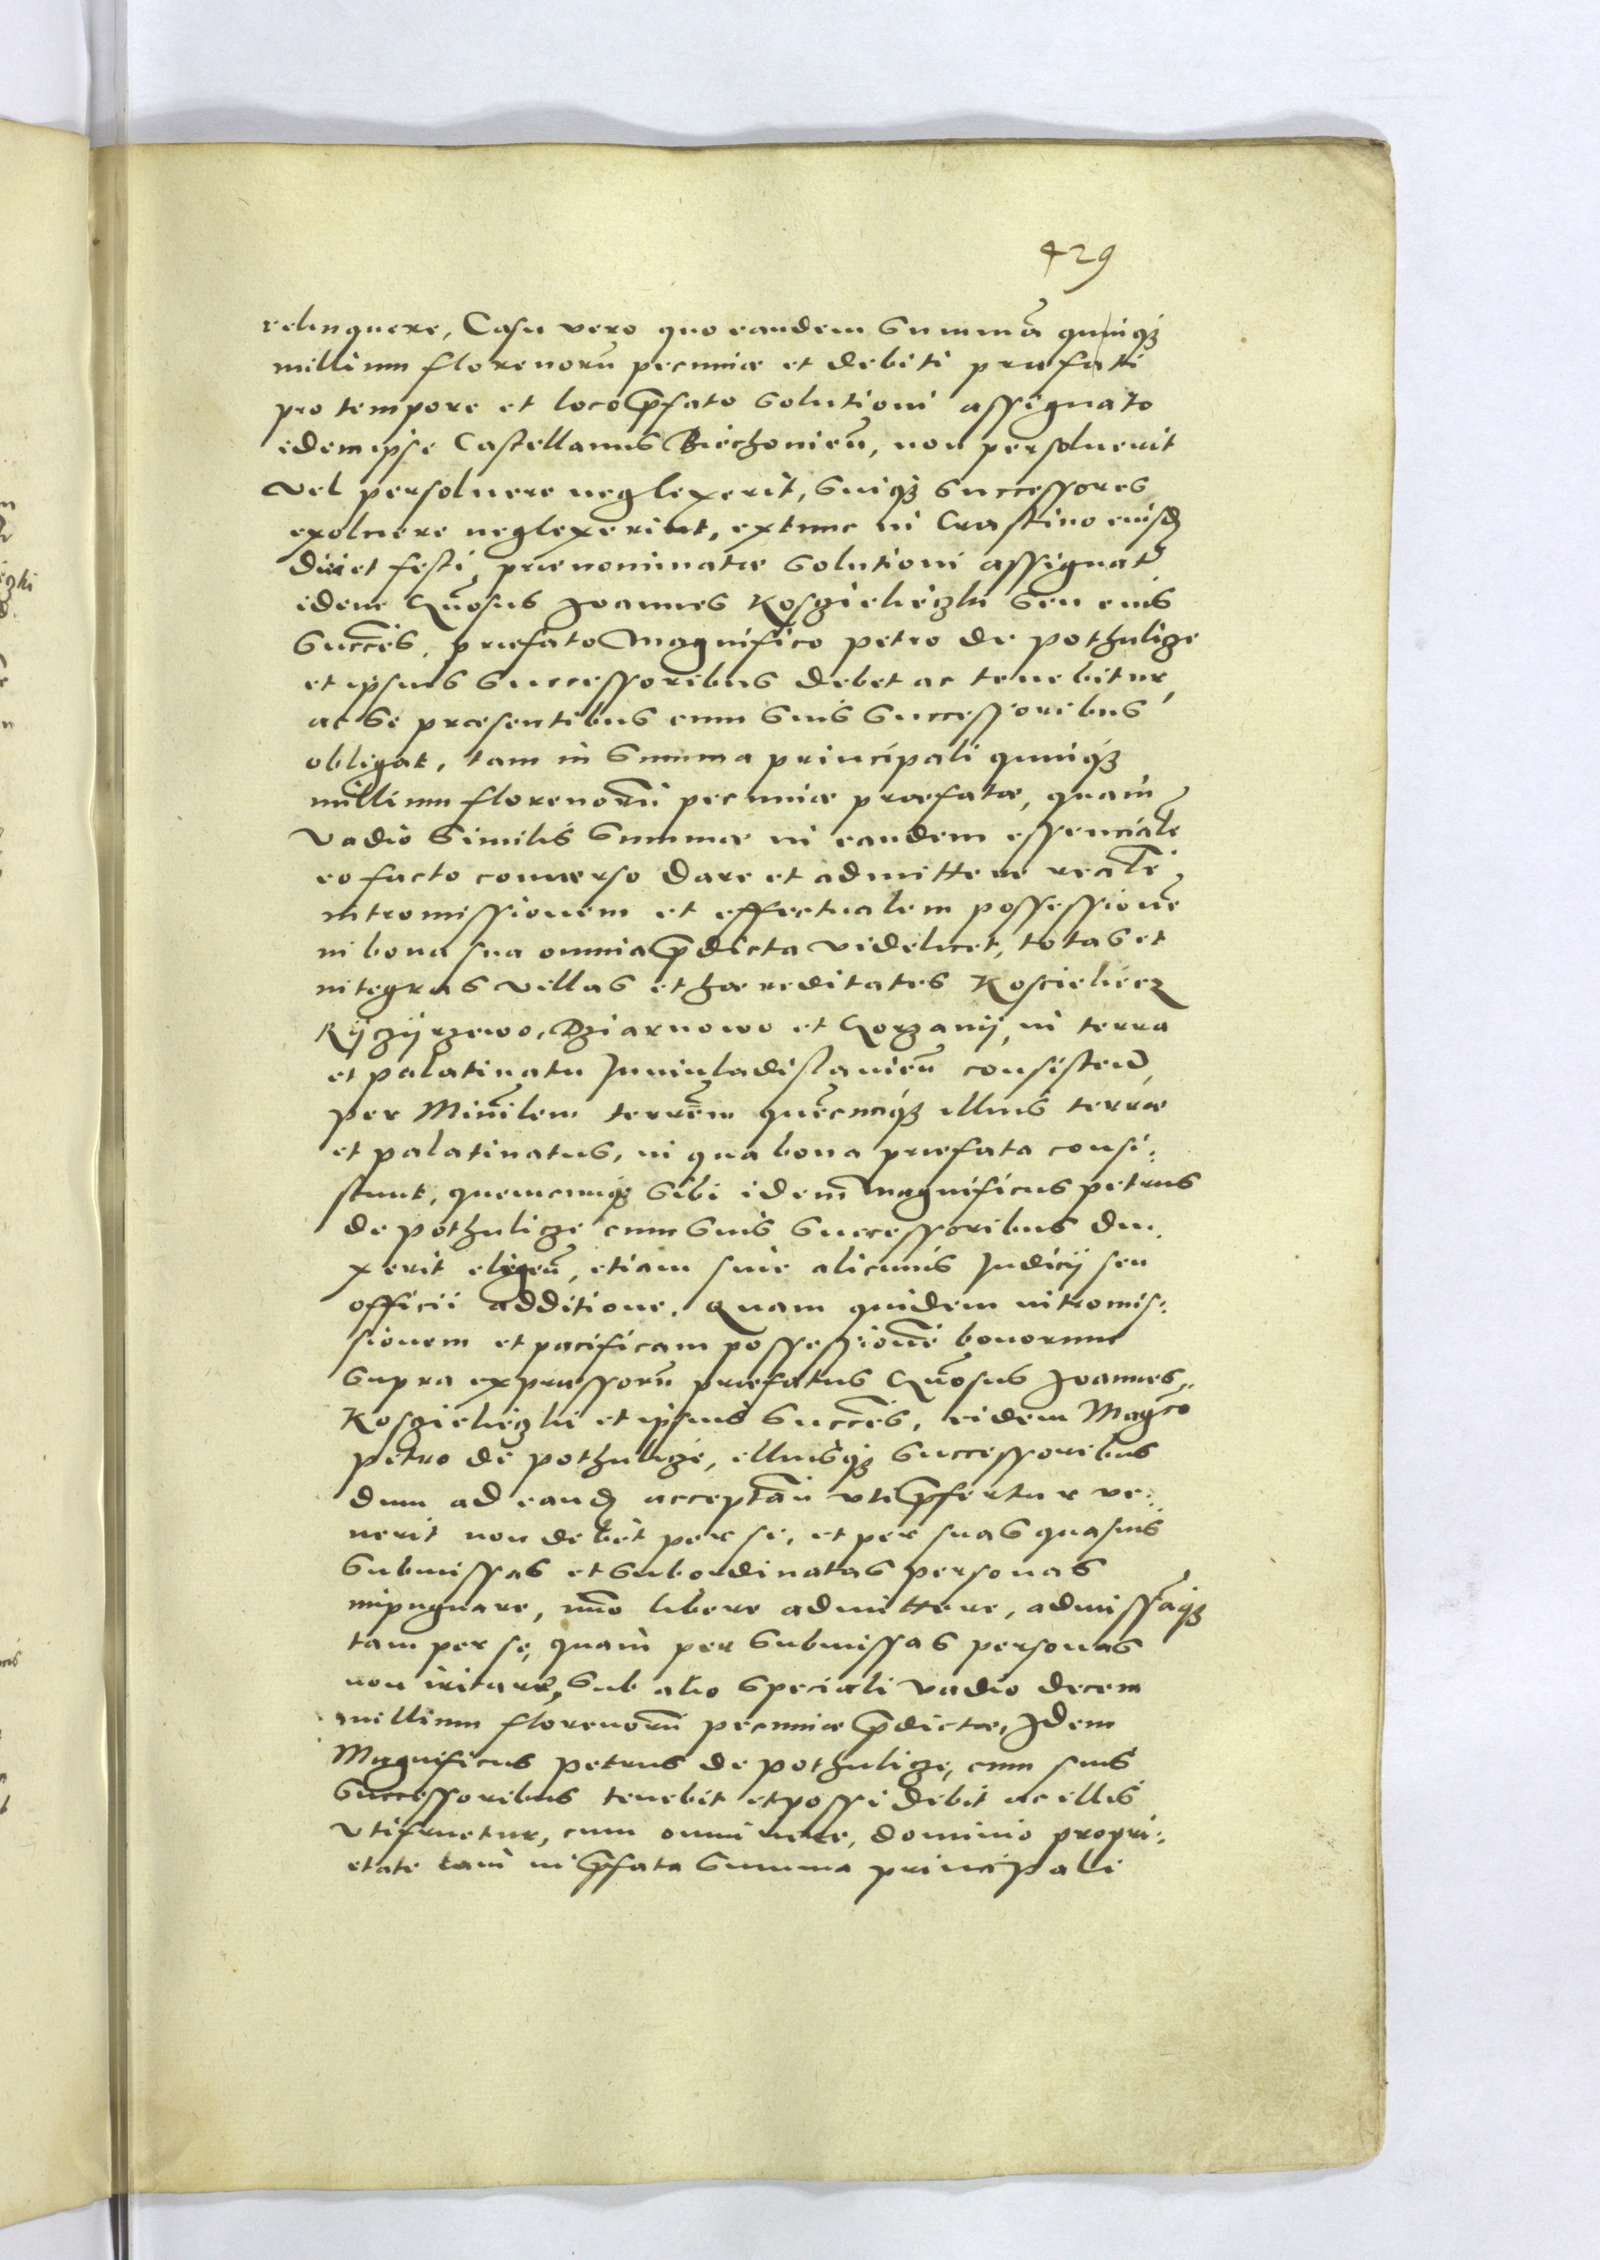 429
relinquere, Casu vero quo eandem Summā quinqȝ
millium florenorū pecuniæ et debiti præfati
pro tempore et loco p̄fato Solutioni assignato
idem ipse Castellanus Biechouieñ, non persoluerit
Vel persoluere neglexerit, Suiqȝ Successores
exoluere neglexerint, extunc in Crastino eiusd
diei et festi, prænominatæ Solutioni assignat
idem Gn̄osus Joannes Kosczielieczki Seu eius
Succēs. præfato Magnifico Petro de Pothulicze
et ipsius Successoribus debet ac tenebitur,
ac Se præsentibus cum Suis Successoribus
obligat, tam in Summa principali quinqȝ
millium florenorū pecuniæ præfatæ, quam
Vadio Similis Summæ in eandem essencialē
eo facto conuerso dare et admittere realē
intromissionem et effectualem possessionē
in bona sua omnia p̄dicta videlicet, totas et
integras villas et hæreditates Koscieliecz
Kÿczÿrzewo, Dziarnowo et Gorzanÿ, in terra
et palatinatu Juniuladislauieñ consisteñ,
per Minīlem terrēm quēcunqȝ illius terræ
et palatinatus, in qua bona præfata consi:
stunt, quemcunqȝ Sibi idem Magnificus Petrus
de Pothulicze cum Suis Successoribus du:
xerit eligeñ, etiam sine alicuius Judicij seu
officii additione. Quam quidem intromis:
sionem et pacificam possessionē bonorum
Supra expressorū præfatus Gn̄osus Joannes
Kosczielieczki et ipsius Succēs, eidem Magco
Petro de Pothulicze, illiusqȝ Successoribus
dum ad eand acceptan̄ vti p̄fertur ve:
nerit non debet per se, et per suas quasuis
Submissas et Subordinatas personas
impugnare, imo libere admittere, admissāqȝ
tam per se, quam per Submissas personas
non iritare, Sub alio Speciali vadio decem
millium florenorū pecuniæ p̄dictæ, Idem
Magnificus Petrus de Pothulicze, cum suis
Successoribus tenebit et possidebit ac illis
vtifruetur, cum omni iure, dominio propri:
etate tam in p̄fata Summa principali